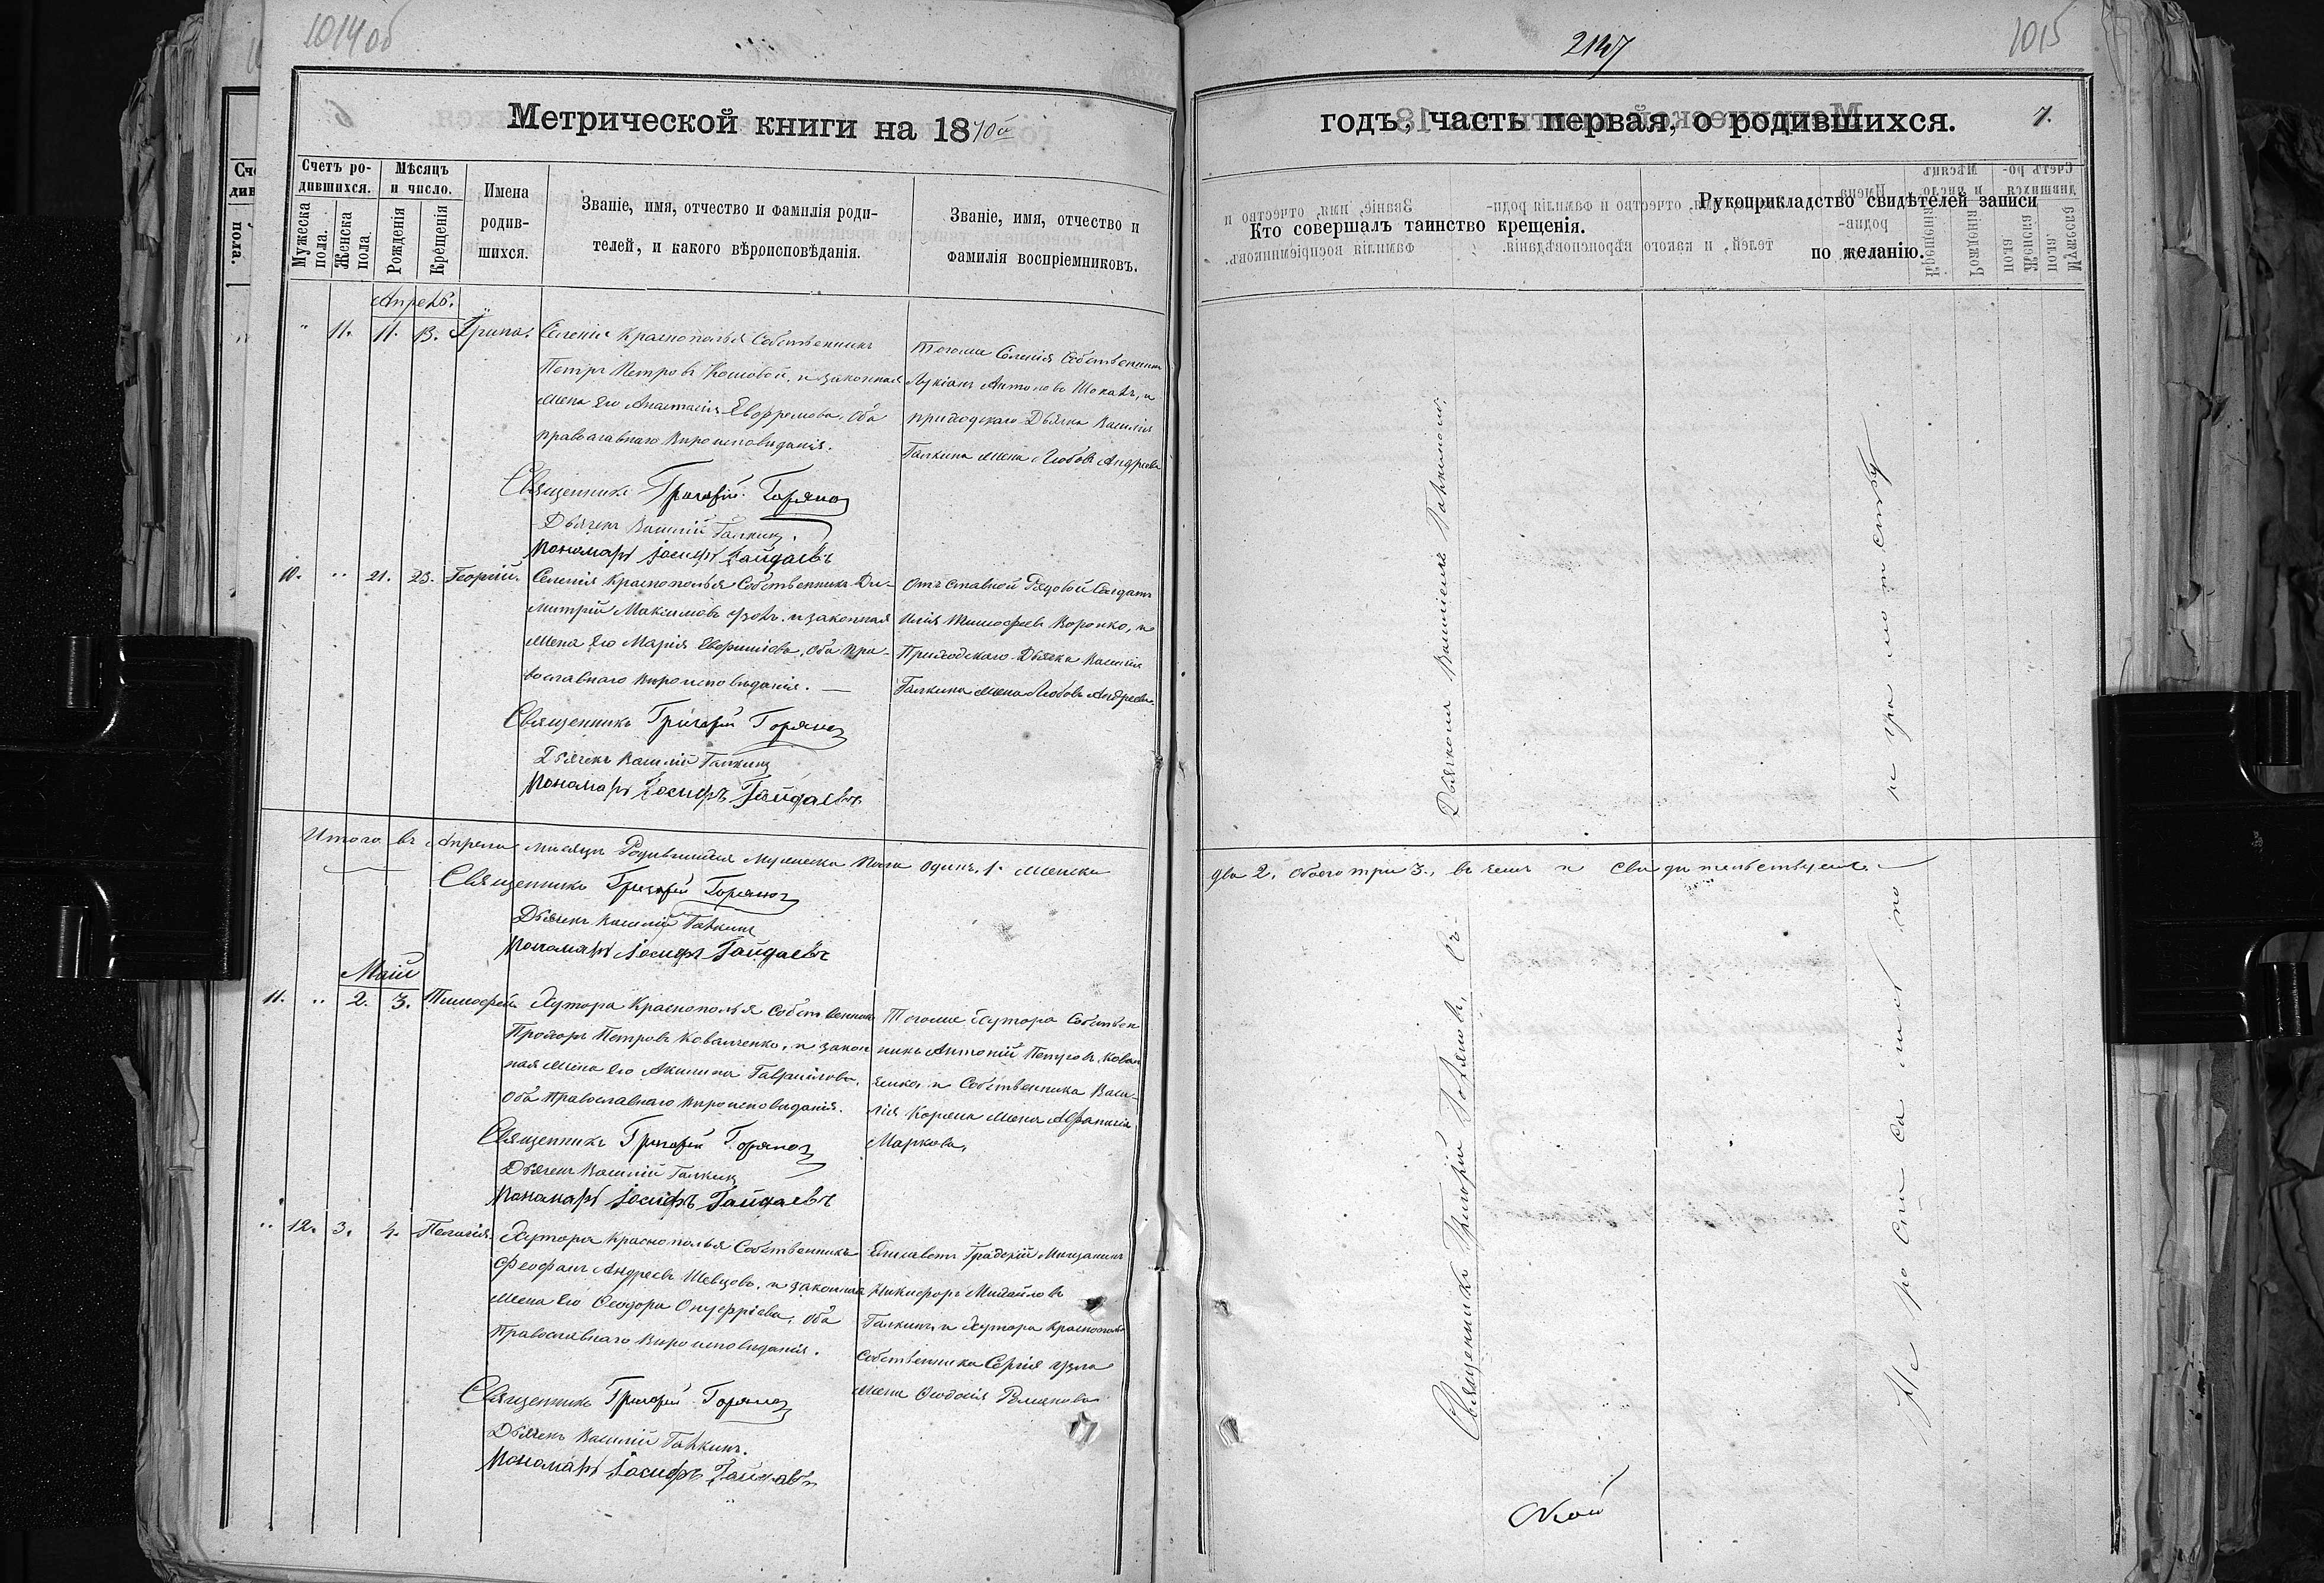 1014 об
Метрической книги на 1870й
Счетъ ро-
дившихся.
Мѣсяцъ
и число.
Мужеска
пола.
Женска
пола.
Рожденія
Крещенія
Имена
родив-
шихся.
Званіе, имя, отчество и фамилія роди-
телей, и какого вѣроисповѣданія.
Званіе, имя, отчество и
фамилія воспріемниковъ.
Апрель.
" 11. 11. 13. Ірина.
Селенія Краснополья Собственникъ
Петръ Петровъ и законная
жена его Анастасія Евфремова, оба
православнаго вѣроисповѣданія.
Тогоже Селенія Собственникъ
Лукіанъ Антоновъ и
приходскаго Дьячка Василія
Галкина жена Любовь Андреева
Священникъ Григорій Горянов
Дьячекъ Василій Галкинъ.
Пономарь Іосифъ Гайдаевъ
10. " 21. 23. Георгій.
Селенія Краснополья Собственникъ Ди-
митрій Максимовъ и законная
жена его Марія оба пра-
вославнаго вѣроисповѣданія. —
Отставной Рядовой Солдатъ
Илія Тимофеевъ Воронко, и
Приходскаго Дьячка Василія
Галкина жена Любовь Андреева.
Священникъ Григорій Горянов
Дьячекъ Василій Галкинъ
Пономарь Іосифъ Гайдаевъ
Итого въ Апрелѣ мѣсяцѣ Родившихся мужеска пола одинъ, 1. женска
Священникъ Григорій Горянов
Дьячекъ Василій Галкинъ
Пономарь Іосифъ Гайдаевъ
Маій
11. " 2. 3. Тимофей
Хутора Краснополья Собственникъ
Прохоръ Петровъ Коваленко, и закон
ная жена его Акилина Гавриилова,
оба православнаго вѣроисповѣданія.
Тогоже Хутора Собствен
никъ Антоній Петровъ Кова
ленко и Собственника Васи-
лія жена
Маркова,
Священникъ Григорій Горянов
Дьячекъ Василій Галкинъ
Пономарь Іосифъ Гайдаевъ
" 12. 3. 4. Пелагія.
Хутора Краснополья Собственникъ
Феофанъ Андреевъ Шевцовъ, и законная
жена его Феодора Онуфріева, оба
Православнаго вѣроисповѣданія.
Градскій мѣщанинъ
Никифоръ Михайловъ
Галкинъ, и Хутора Краснополья
Собственника Сергія
жена Феодосія
Священникъ Григорій Горянов
Дьячекъ Василій Галкинъ.
Пономарь Іосифъ Гайдаевъ
1015
годъ, часть первая, о родившихся.
7.
Кто совершалъ таинство крещенія.
Рукоприкладство свидѣтелей записи
по желанію.
два 2. обоего три 3., въ чемъ и свидѣтельствуемъ.
Священникъ Григорій Горяновъ, съ
Дьячкомъ Василіемъ Галкиномъ.
Не росписались по
неграмотству.